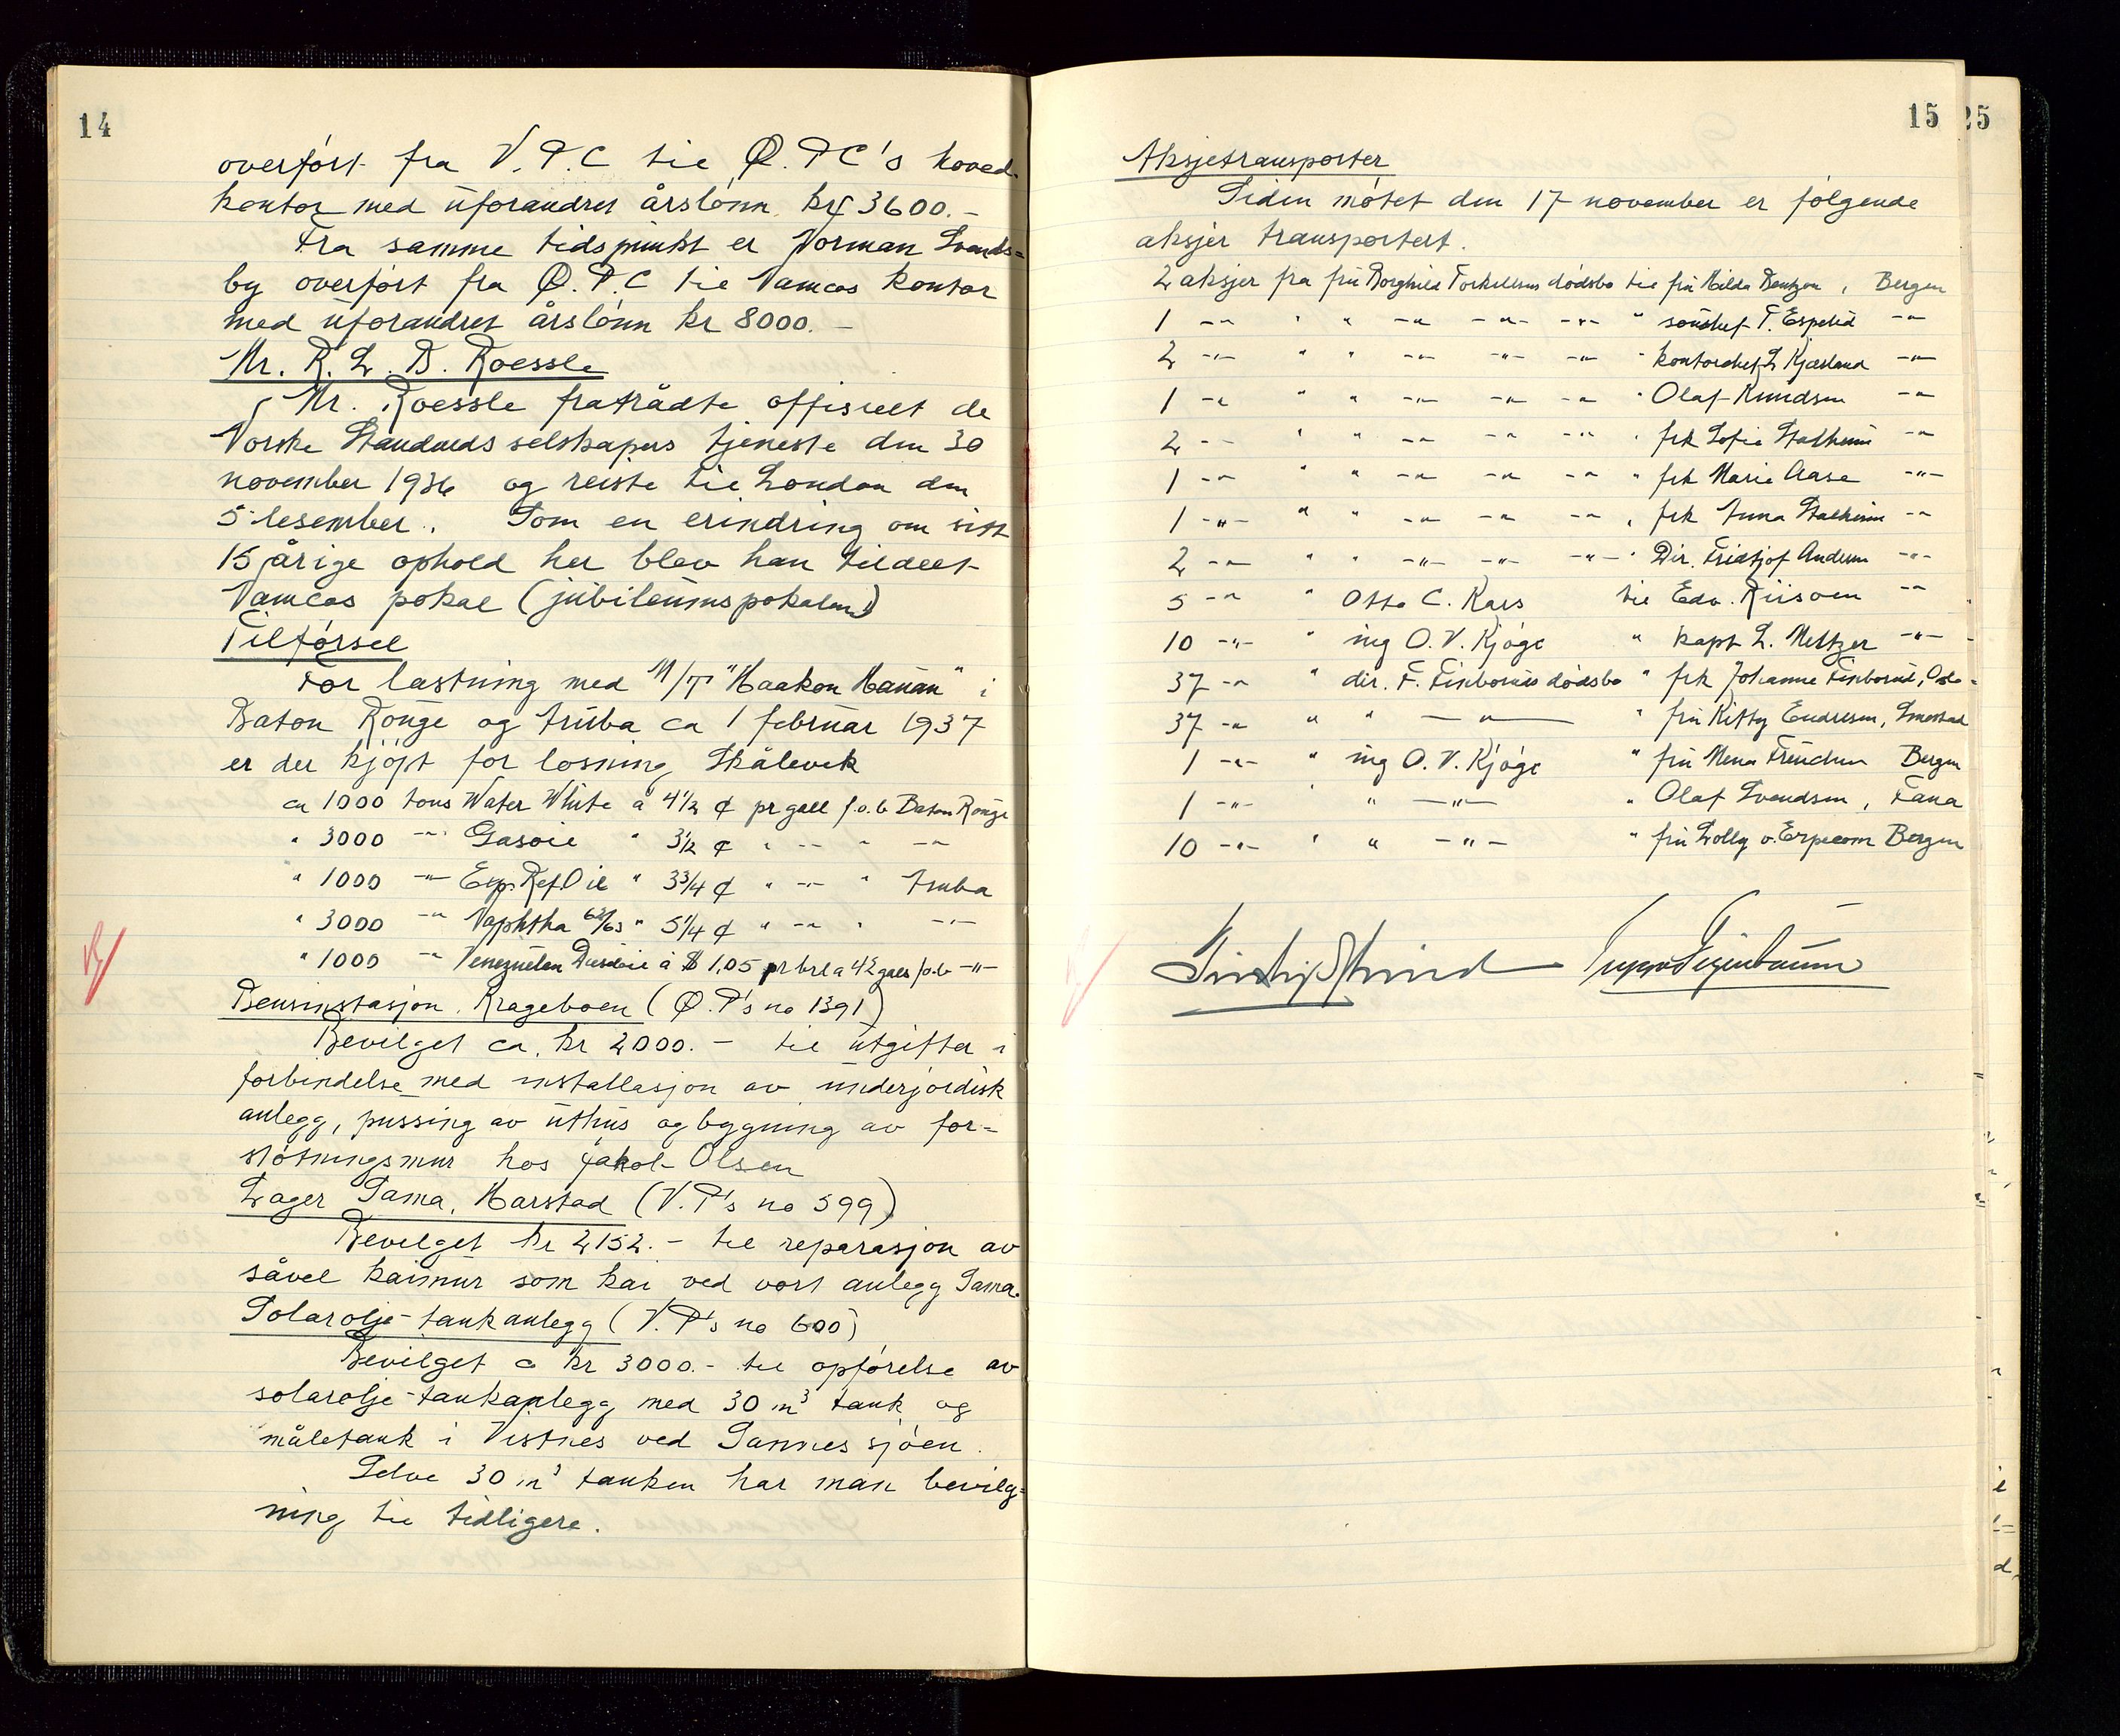 14
overført fra V.P.C til Ø.P.C's hoved-
kontor med uforandret årslønn kr 3600.-
Fra samme tidspunkt er Norman Svends=
by overført fra Ø.P.C til Vamcos kontor
med uforandret årslønn kr 8000.-
Mr. R. L. B. Roessle
Mr. Roessle fratrådte offisielt de
Norske Standardselskapers tjeneste den 30
november 1936 og reiste til London den
5 desember. Som en erindring om sitt
15 årige ophold her blev han tildelt
Vamcos pokal (jubileumspokalen)
Tilførsel
For lastning med M/T "Haakon Hauan" i
Baton Rouge og Aruba ca 1 februar 1937
er der kjøpt for losning Skålevik
ca 1000 tons Water White à 4 1/2 ¢ pr gall f.o.b Baton Rouge
" 3000 -"- Gasoil " 3 1/2 ¢ " -"- " -"-
" 1000 -"- Exp. Ref. Oil " 3 3/4 ¢ " -"- " Aruba
" 3000 -"- Naphtha 62/63 " 5 1/4 ¢ " -"- " -"-
" 1000 -"- Venezuelan Dieseloil à $ 1,05 pr brl a 42 galls f.o.b -"-
Bensinstasjon, Krageboen (Ø.P's no 1391)
Bevilget ca. kr 2000.- til utgifter i
forbindelse med installasjon av underjordisk
anlegg, pussing av uthus og bygning av for=
støtningsmur hos Jakob Olsen
Lager Sama, Harstad (V.P's no 599)
Bevilget kr 2152.- til reparasjon av
såvel kaimur som kai ved vort anlegg Sama.
Solarolje-tankanlegg (V.P's no 600)
Bevilget ca kr 3000.- til opførelse av
solarolje-tankanlegg med 30 m³ tank og
måletank i Vistnes ved Sannessjøen.
Selve 30 m³ tanken har man bevilg=
ning til tidligere.
15
25
Aksjetransporter
Siden møtet den 17 november er følgende
aksjer transportert.
2 aksjer fra fru Borghild Torkelsens dødsbo til fru Hilda Bentzen, Bergen
1 -"- " " -"- -"- -"- " T. Espelid -"-
2 -"- " " -"- -"- -"- " kontorchef L Kjærland -"-
1 -"- " " -"- -"- -"- " Olaf Knudsen -"-
2 -"- " " -"- -"- -"- " frk Sofie Stalheim -"-
1 -"- " " -"- -"- -"- " frk Marie Aase -"-
1 -"- " " -"- -"- -"- " frk Anna Stalheim -"-
2 -"- " " -"- -"- -"- " Dir. Fridtjof Andersen -"-
5 -"- " Otto C. Kars til Edv. Riisoen -"-
10 -"- " ing O. V. Kjøge " kapt L. Meltzer -"-
37 -"- " dir. F. Finboruds dødsbo " frk Johanne Finborud, Oslo
37 -"- " " -"- " fru Kitty Endresen, Smestad
1 -"- " ing O. V. Kjøge " fru Mena Bergen
1 -"- " " -"- " Olaf Svendsen, Fana
10 -"- " " -"- " fru Lolly v. Erpecom Bergen